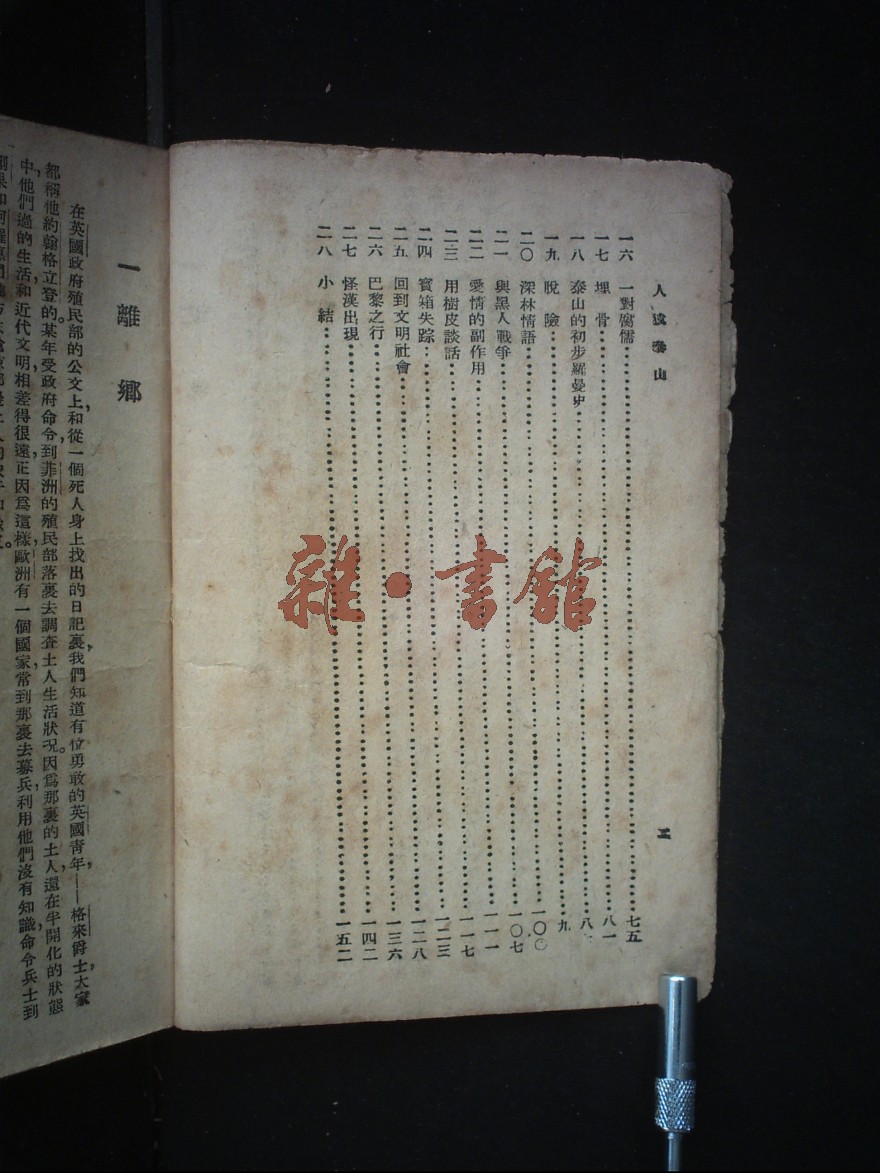 人猿泰山
一六 一對腐儒 七五
一七 埋骨 八一
一八 泰山的初步羅曼史 八
一九 脫險 九
二〇 深林情語 一〇〇
二一 與黑人戰爭 一〇七
二二 愛情的副作用 一一一
二三 用樹皮談話 一一七
二四 寶箱失踪 一二三
二五 回到文明社會 一二八
二六 巴黎之行 一三六
二七 怪漢出現 一四二
二八 小結 一五二
一 離鄉
在英國政府殖民部的公文上，和從一個死人身上找出的日記裏，我們知道有位勇敢的英國青年，——格來爵士，大家
都稱他約翰格立登的。某年受政府命令，到菲洲的殖民部落裏去調查土人生活狀况。因爲那裏的土人，還在半開化的狀態
中，他們過的生活和近代文明相差得很遠，正因爲這樣，歐洲有一個國家，常到那裏去募兵，利用他們沒有知識，命令兵士到
雜·書館